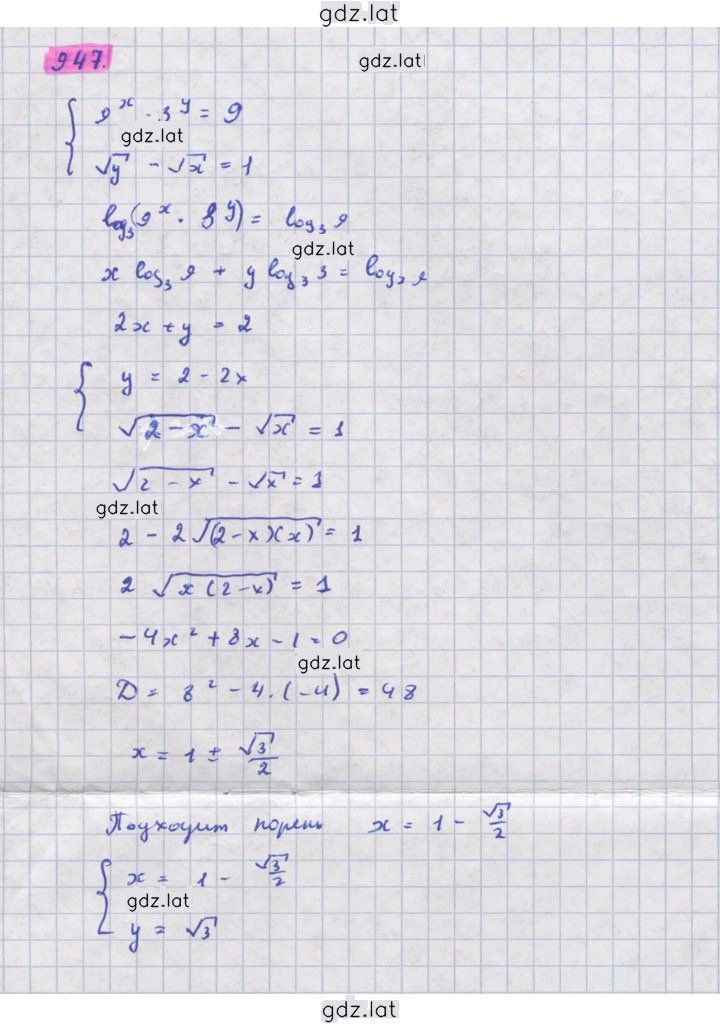 gdz.lat
947.
gdz.lat
9^x · 3^y = 9
gdz.lat
√y - √x = 1
log₃(9^x · 3^y) = log₃ 9
gdz.lat
x log₃ 9 + y log₃ 3 = log₃ 9
2x + y = 2
y = 2 - 2x
√(2 - x) - √x = 1
√(2 - x) - √x = 1
gdz.lat
2 - 2√((2-x)(x)) = 1
2 √(x(2-x)) = 1
-4x² + 8x - 1 = 0
gdz.lat
D = 8² - 4·(-4) = 48
x = 1 ± √3/2
Подходит корень x = 1 - √3/2
x = 1 - √3/2
gdz.lat
y = √3
gdz.lat